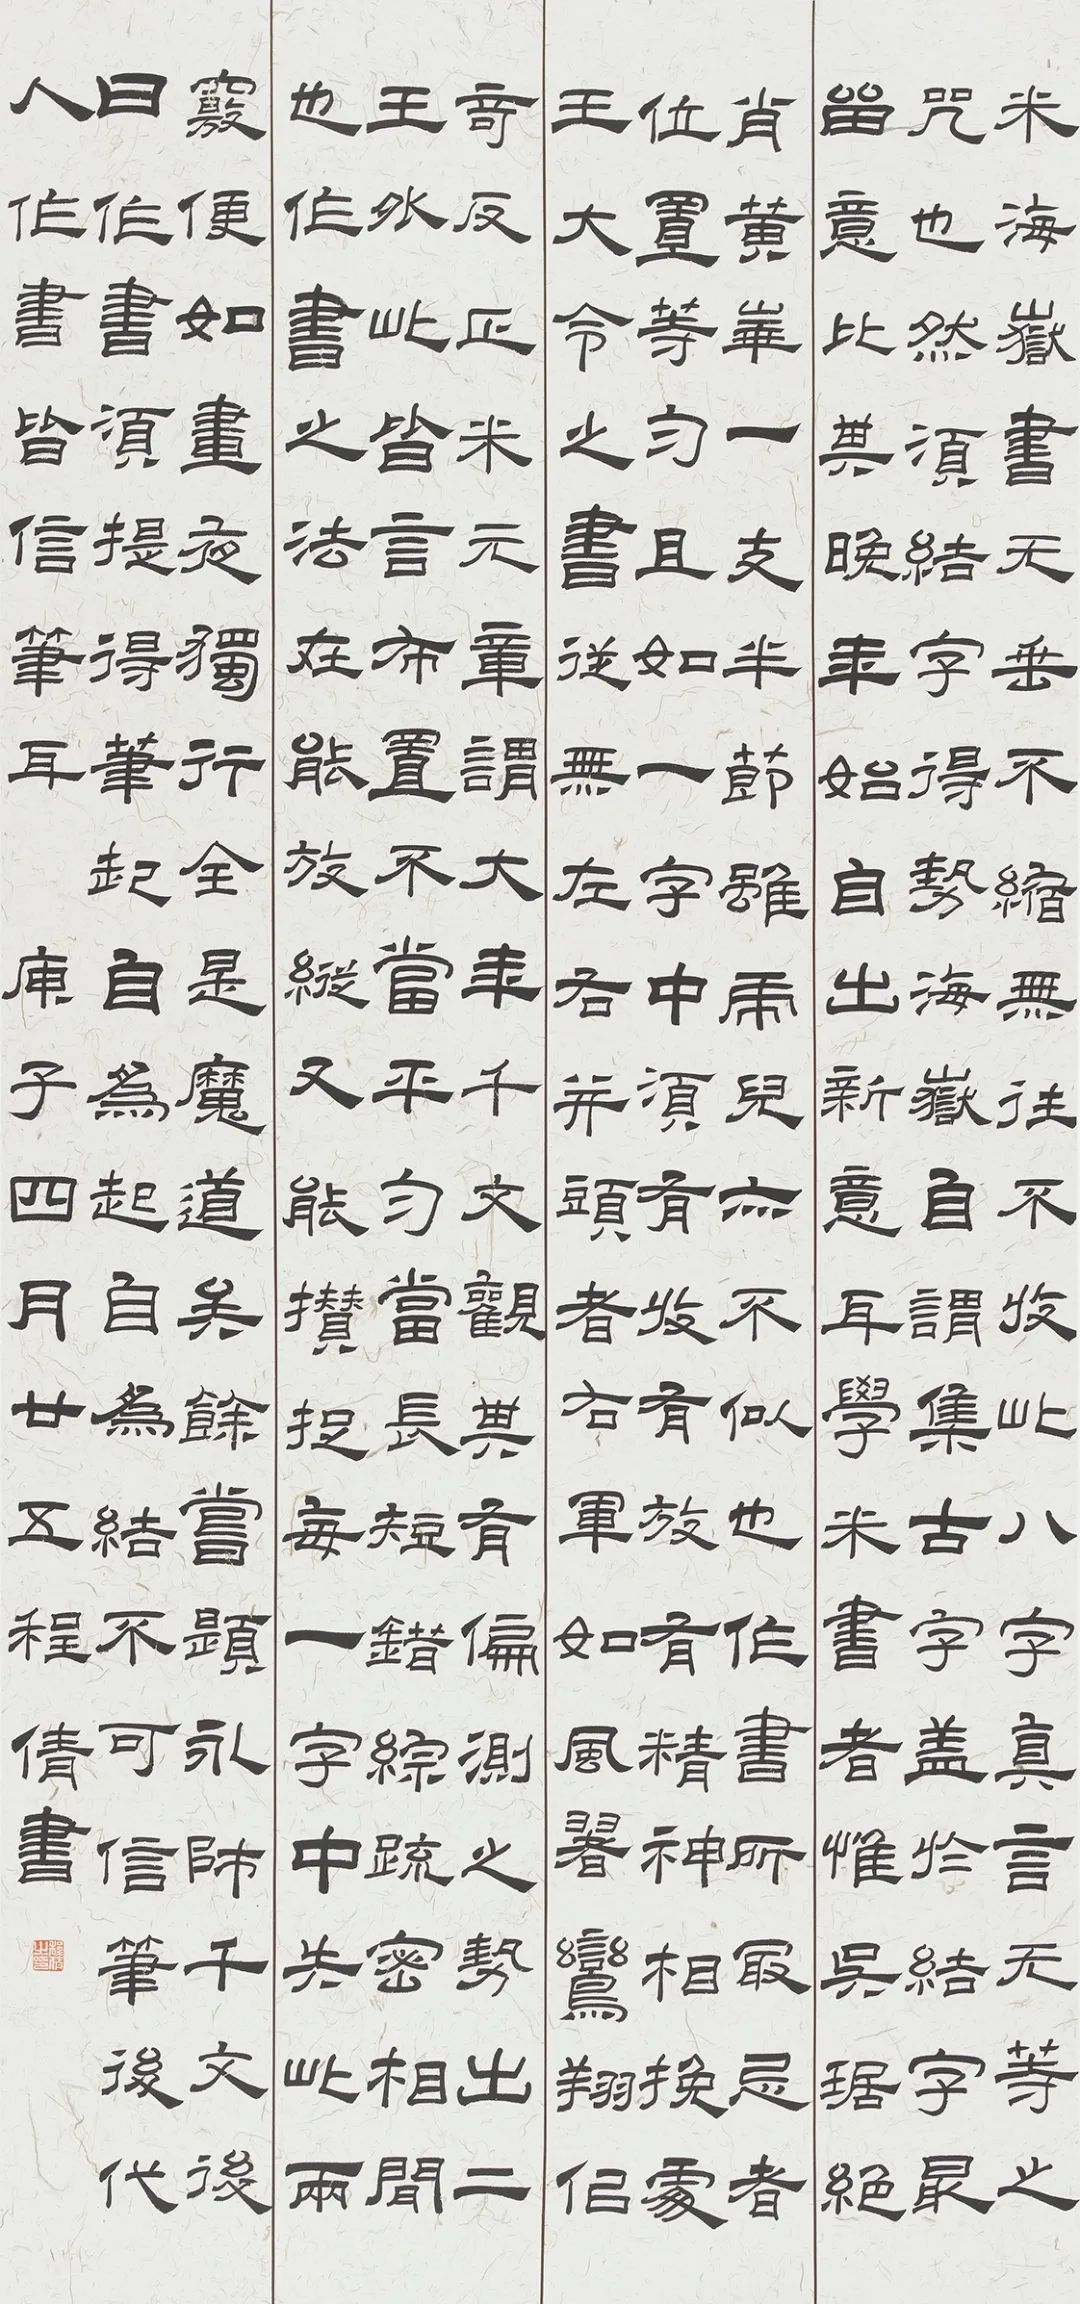 米海嶽書无垂不縮無往不收此八字真言无等之
咒也然須結字得勢海嶽自謂集古字盖於結字最
留意比其晚年始自出新意耳學米書者惟吳琚絕
肖黃華一支半節雖虎兒亦不似也作書所最忌者
位置等勻且如一字中須有收有放有精神相挽處
王大令之書從無左右并頭者右軍如鳳翥鸞翔似
奇反正米元章謂大年千文觀其有偏測之勢出二
王外此皆言布置不當平勻當長短錯綜疏密相間
也作書之法在能放縱又能攢捉每一字中失此兩
竅便如晝夜獨行全是魔道矣餘嘗題永師千文後
曰作書須提得筆起自為起自為結不可信筆後代
人作書皆信筆耳 庚子四月廿五程倩書